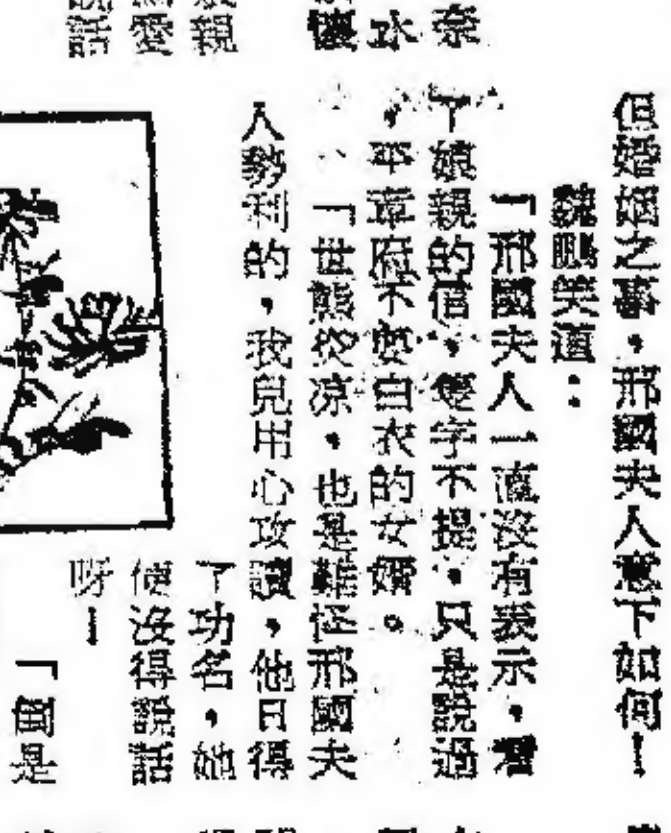 但婚姻之事，邢國夫人意下如何！
魏鵬笑道：
「邢國夫人一直沒有表示，看
了娘親的信，隻字不提，只是說過
，平章府不要白衣的女婿。
「世態炎凉，也是難怪邢國夫
人勢利的，我兒用心攻讀，他日得
了功名，她
便沒得說話
呀！
「倒是
奈
水
親
愛
說話